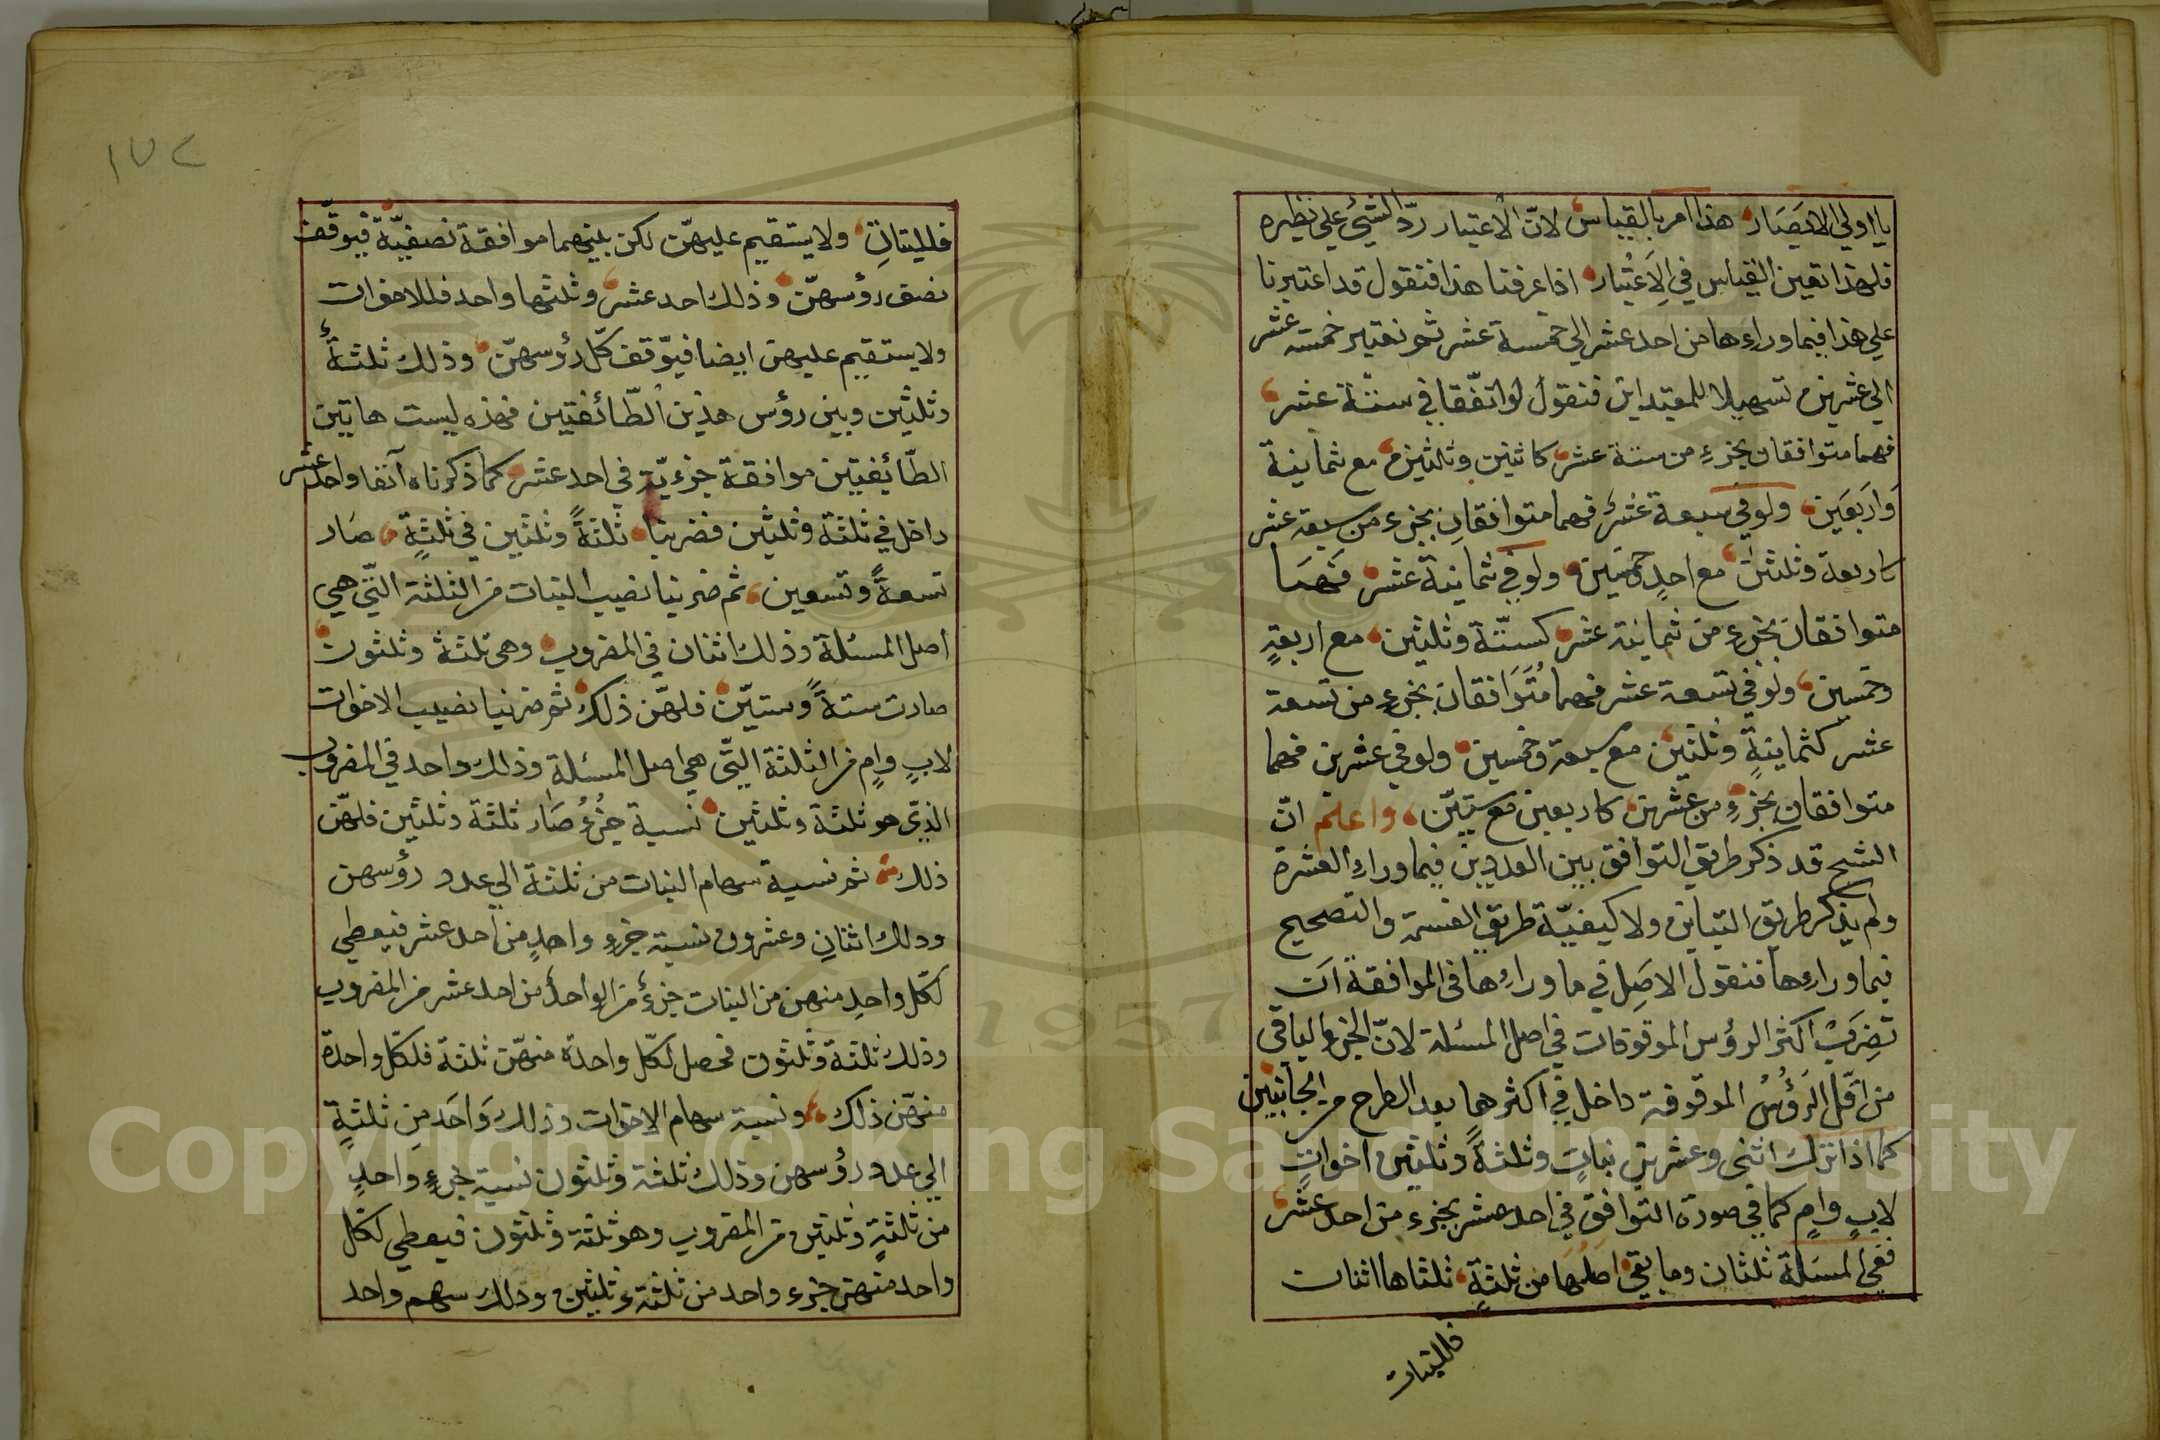 يا اولي الابصار هذا امر بالقياس لانّ الاعتبار ردّ الشئ علي نظيره
فلهذا تعين القياس في الاعتبار اذا عرفنا هذا فنقول قد اعتبرنا
علي هذا فيما وراءها من احد عشر الي خمسة عشر ثم نعتبر خمسة عشر
الي عشرين تسهيلا للمبتدائن فنقول لو اتفّقا في ستة عشر
فهما متوافقان بجزءِ من ستة عشر كاثنين وثلثين مع ثمانية
واربعين ولو في سبعة عشر فهما متوافقان بجزء من سبعة عشر
كاربعة وثلثين مع احدٍ وخمسين ولو في ثمانية عشر فهما
متوافقان بجزء من ثمانية عشر كستّة وثلثين مع اربعةٍ
وخمسين ولو في تسعة عشر فهما متوافقان بجزءٍ من تسعة
عشر كثمانيةٍ وثلثين مع سبعة وخمسين ولو في عشرين فهما
متوافقان بجزءٍ من عشرين كاربعين مع ستيّن واعلم انّ
الشيح قد ذكر طريق التوافق بين العددين فيما وراء العشرة
ولم يذكر طريق التباين ولا كيفيّة طريق القسمة والتصحيح
فيما وراءها فنقول الاصل في ما وراءها في الموافقة ان
تضرب اكثر الرؤس الموقوفات في اصل المسئلة لانّ الجزء الباقي
من اقّل الرَؤُسُ الموقوفة داخل في اكثرها بعد الطرح من الجانبين
كما اذا ترك اثنى وعشرين بناتٍ وثلثةً وثلثين اخواتٍ
لابٍ وامٍ كما في صورة التوافق في احد عشر بجزء من احد عشر
ففي المسئلة ثلثان وما بقي اصلها من ثلثةٍ ثلثاها اثنان
فللبنات
فللبناتِ ولا يستقيم عليهنّ لكن بينهما موافقة نصفيّة فيوقّف
نصف رؤسهنّ وذلك احد عشر وثلثها واحد فللاخوات
ولا يستقيم عليهن ايضا فيوّقف كلّ رؤسهنّ وذلك ثلثةٌ
وثلثين وبين رؤس هذين الطّائفتين فهذه ليست هاتين
الطّائفيتين موافقة جزءيّة في احد عشر كما ذكرناه آنفا واحد عشر
داخل في ثلثة وثلثين فضربنا ثلثةً وثلثين في ثلثةٍ صار
تسعةً وتسعين ثم ضربنا نصيب البنات من الثلثة التّي هي
اصل المسئلة وذلك اثنان في المضروب وهي ثلثة وثلثون
صارت ستةً وستيّن فلهّن ذلك ثم ضربنا نصيب الاخوات
لابٍ وامٍ من الثلثة التّي هي اصل المسئلة وذلك واحد في المضروب
الذيّ هو ثلثة وثلثين نسبة جزءُ صار ثلثة وثلثين فلهّن
ذلك ثم نسبة سهام البنات من ثلثة الي عدد رؤسهن
وذلك اثنان وعشرون نسبة جزء واحدٍ من احد عشر فيعطي
لكّل واحدٍ منهن من البنات جزءٌ من الواحد من احد عشر من المضروب
وذلك ثلثة وثلثون فحصل لكّل واحدة منهّن ثلثة فلكّل واحدة
منهّن ذلك ونسبة سهام الاخوات وذلك واحد من ثلثةٍ
الي عدد رؤسهن وذلك ثلثة وثلثون نسبة جزءٍ واحدٍ
من ثلثةٍ وثلثين من المضروب وهو ثلثة وثلثون فيعطي لكّل
واحد منهن جزء واحد من ثلثة وثلثين وذلك سهم واحد
١٧٢
Copyright © King Saud University
1957